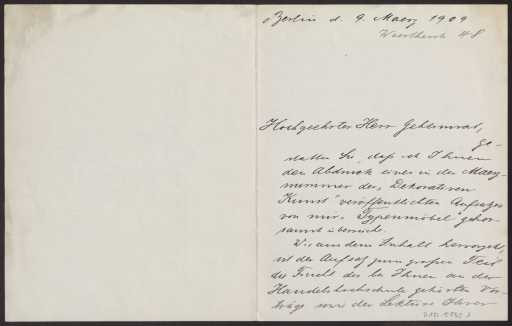 Berlin d. 9. Maerz 1909
48
Hochgeehrter Herr Geheimrat,
ge-
statten Sie, daß ich Ihnen
den Abdruck eines in der Maerz-
nummer der „Dekorativen
Kunst" veröffentlichten Aufsatzes
von mir „Typenmöbel" gehor-
samst überreiche.
Wie aus dem Inhalt hervorgeht,
ist der Aufsatz zum großen Teil
die Frucht der bei Ihnen an der
Handelshochschule gehörten Vor-
träge und der Lektüre Ihrer